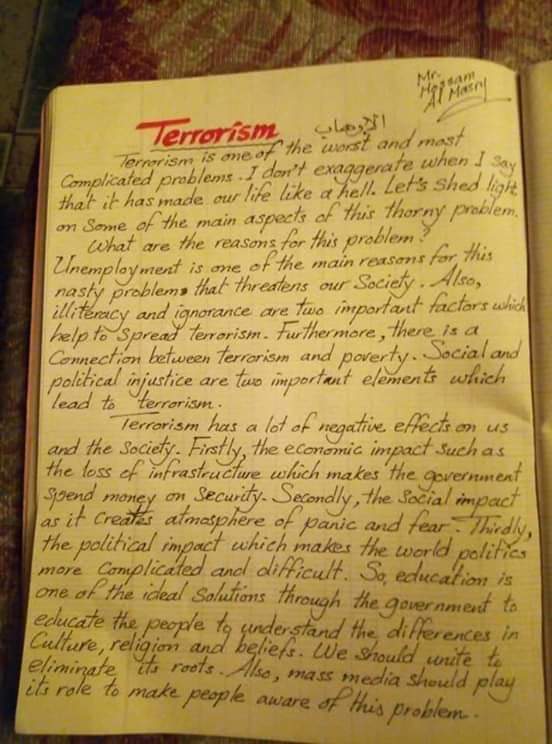 Mr.
Hossam
Al Masry
Terrorism الإرهاب
Terrorism is one of the worst and most
complicated problems. I don't exaggerate when I say
that it has made our life like a hell. Let's shed light
on some of the main aspects of this thorny problem.
What are the reasons for this problem?
Unemployment is one of the main reasons for this
nasty problem that threatens our society. Also,
illiteracy and ignorance are two important factors which
help to spread terrorism. Furthermore, there is a
connection between terrorism and poverty. Social and
political injustice are two important elements which
lead to terrorism.
Terrorism has a lot of negative effects on us
and the society. Firstly, the economic impact such as
the loss of infrastructure which makes the government
spend money on security. Secondly, the social impact
as it creates atmosphere of panic and fear. Thirdly,
the political impact which makes the world politics
more complicated and difficult. So, education is
one of the ideal solutions through the government to
educate the people to understand the differences in
culture, religion and beliefs. We should unite to
eliminate its roots. Also, mass media should play
its role to make people aware of this problem.